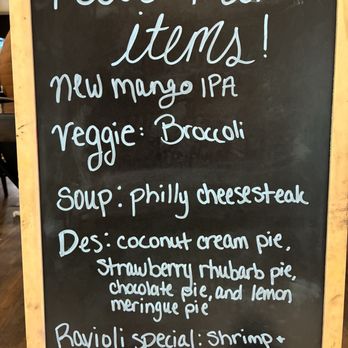 items!
new mango IPA
veggie: Broccoli
Soup: philly cheesesteak
Des: coconut cream pie,
strawberry rhubarb pie,
chocolate pie, and lemon
meringue pie
Ravioli special: shrimp +